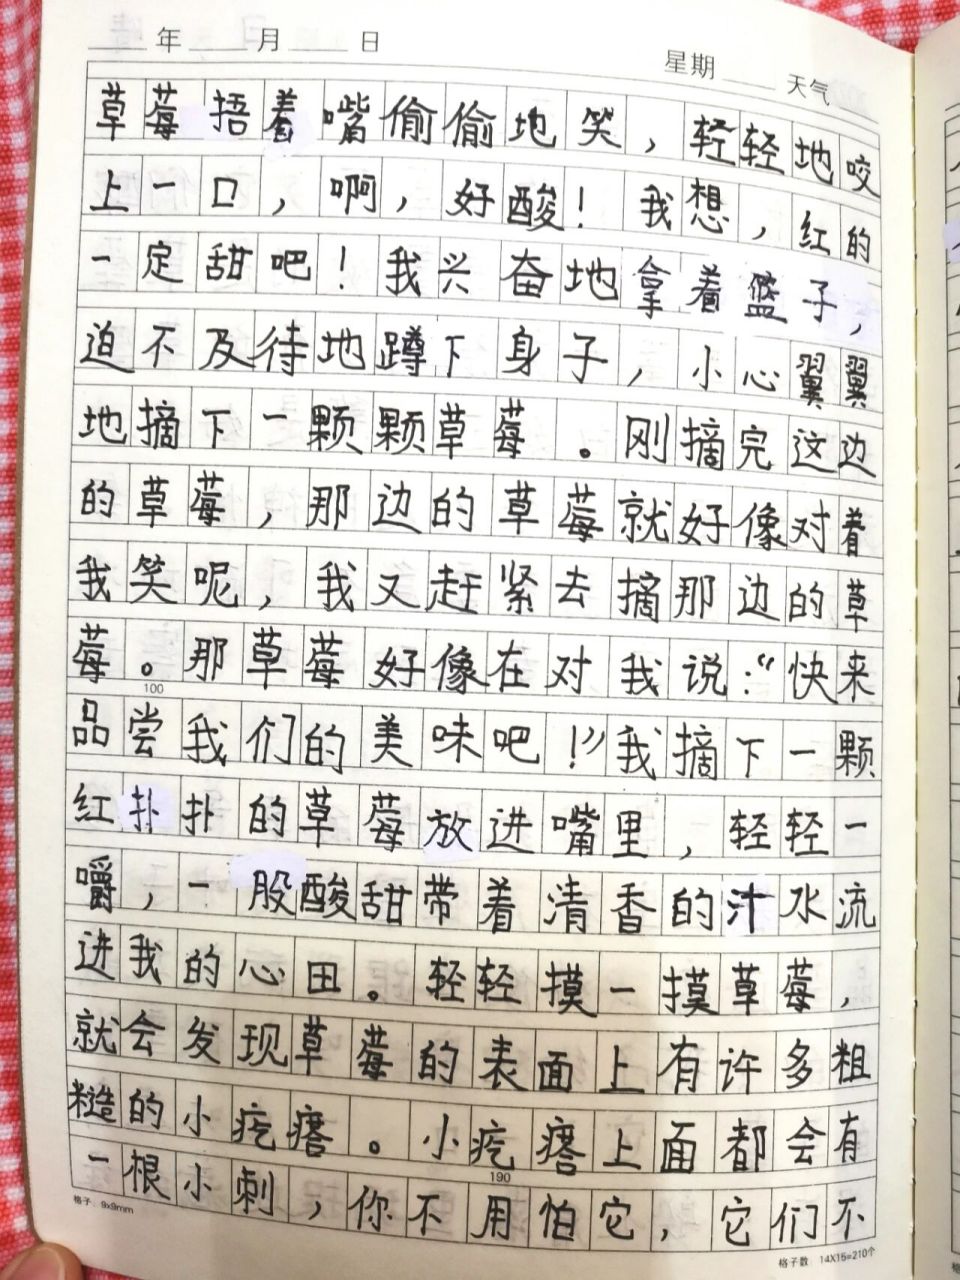 年 月 日
星期 天气
草莓捂着嘴偷偷地笑，轻轻地咬
上一口，啊，好酸！我想，红的
一定甜吧！我兴奋地拿着篮子，
迫不及待地蹲下身子，小心翼翼
地摘下一颗颗草莓。刚摘完这边
的草莓，那边的草莓就好像对着
我笑呢，我又赶紧去摘那边的草
莓。那草莓好像在对我说：“快来
100
品尝我们的美味吧！”我摘下一颗
红扑扑的草莓放进嘴里，轻轻一
嚼，一股酸甜带着清香的汁水流
进我的心田。轻轻摸一摸草莓，
就会发现草莓的表面上有许多粗
糙的小疙瘩。小疙瘩上面都会有
190
一根小刺，你不用怕它，它们不
格子：9x9mm
格子数：14X15=210个